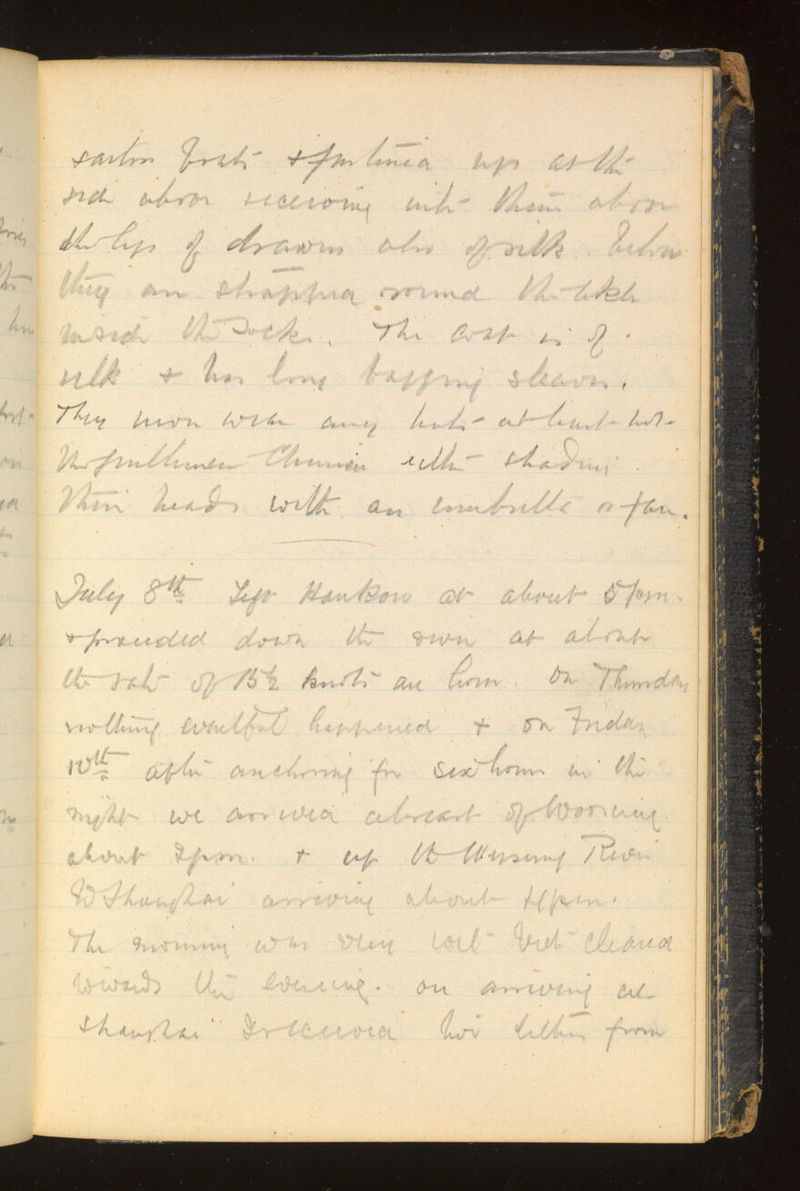 & fastened up at the
side above receiving into them above
the legs of drawers also of silk. Below
they are strapped round the
inside the socks. The coat is of
silk & has long bagging sleaves.
They never wear any hats at least not
the gentlemen Chinese either shading
their heads with an umbrella or fan.
July 8th Left Hankow at about 5 pm.
& proceeded down the river at about
the rate of 15½ knots an hour. On Thursday
nothing eventful happened & on Friday
10th after anchoring for six hours in the
night we arrived abreast of Woosung
about 2 pm. & up the Wusung River
to Shanghai arriving about 4 pm.
The morning was very wet but cleared
towards the evening. On arriving at
Shanghai I received two letters from